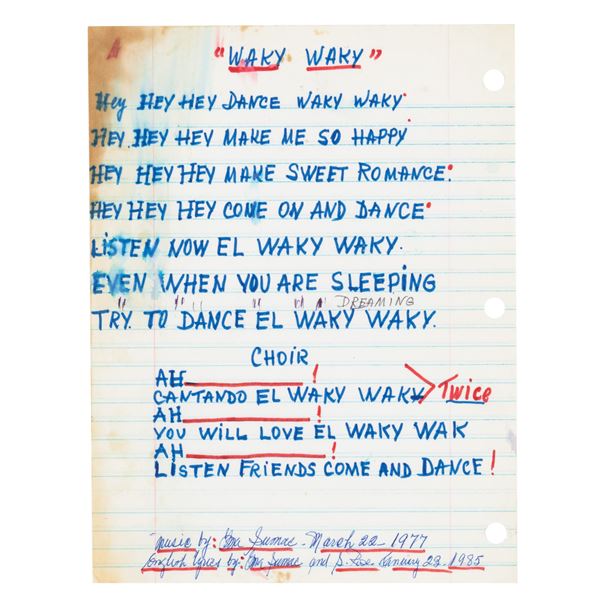 "WAKY WAKY"
Hey HEY HEY DANCE WAKY WAKY
HEY HEY HEY MAKE ME SO HAPPY
HEY HEY HEY MAKE SWEET ROMANCE.
HEY HEY HEY COME ON AND DANCE
LISTEN NOW EL WAKY WAKY.
EVEN WHEN YOU ARE SLEEPING
" " " " " " DREAMING
TRY. TO DANCE EL WAKY WAKY.
CHOIR
AH !
CANTANDO EL WAKY WAKY > Twice
AH !
YOU WILL LOVE EL WAKY WAK
AH !
LISTEN FRIENDS COME AND DANCE!
music by: Yma Sumac - March 22 1977
English lyrics by: Yma Sumac and S. January 22 1985